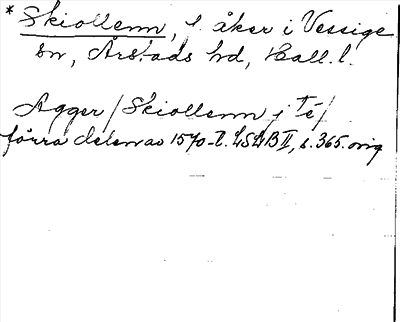 * Skiollenn, f. åker i Vessige
sn, Årstads hd, Hall. l.
Agger /Skiollenn j té/
förra delen av 1570-t. LSLB II, s. 365. orig